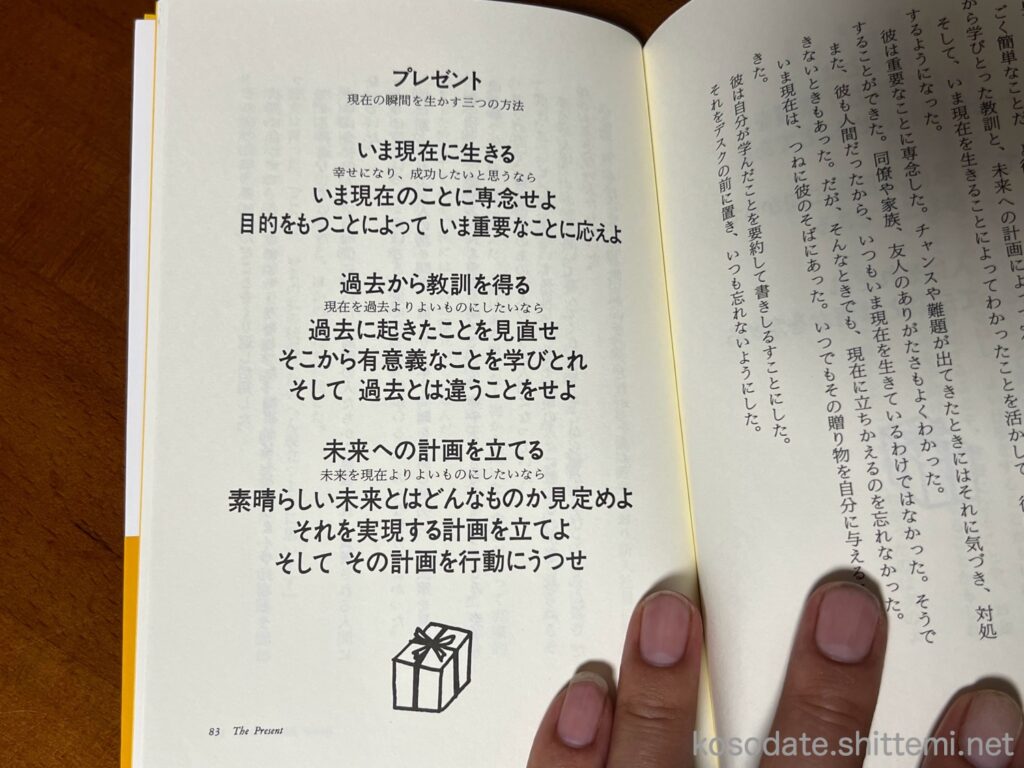 ごく簡単なことだ
から学びとった教訓と、未来への計画によっ
そして、いま現在を生きることによってわかったことを活かして、
するようになった。
彼は重要なことに専念した。チャンスや難題が出てきたときにはそれに気づき、対処
することができた。同僚や家族、友人のありがたさもよくわかった。
また、彼も人間だったから、いつもいま現在を生きているわけではなかった。そうで
きないときもあった。だが、そんなときでも、現在に立ちかえるのを忘れなかった。
いま現在は、つねに彼のそばにあった。いつでもその贈り物を自分に与える
きた。
彼は自分が学んだことを要約して書きしるすことにした。
それをデスクの前に置き、いつも忘れないようにした。
プレゼント
現在の瞬間を生かす三つの方法
いま現在に生きる
幸せになり、成功したいと思うなら
いま現在のことに専念せよ
目的をもつことによって いま重要なことに応えよ
過去から教訓を得る
現在を過去よりよいものにしたいなら
過去に起きたことを見直せ
そこから有意義なことを学びとれ
そして 過去とは違うことをせよ
未来への計画を立てる
未来を現在よりよいものにしたいなら
素晴らしい未来とはどんなものか見定めよ
それを実現する計画を立てよ
そして その計画を行動にうつせ
83 The Present
kosodate.shittemi.net